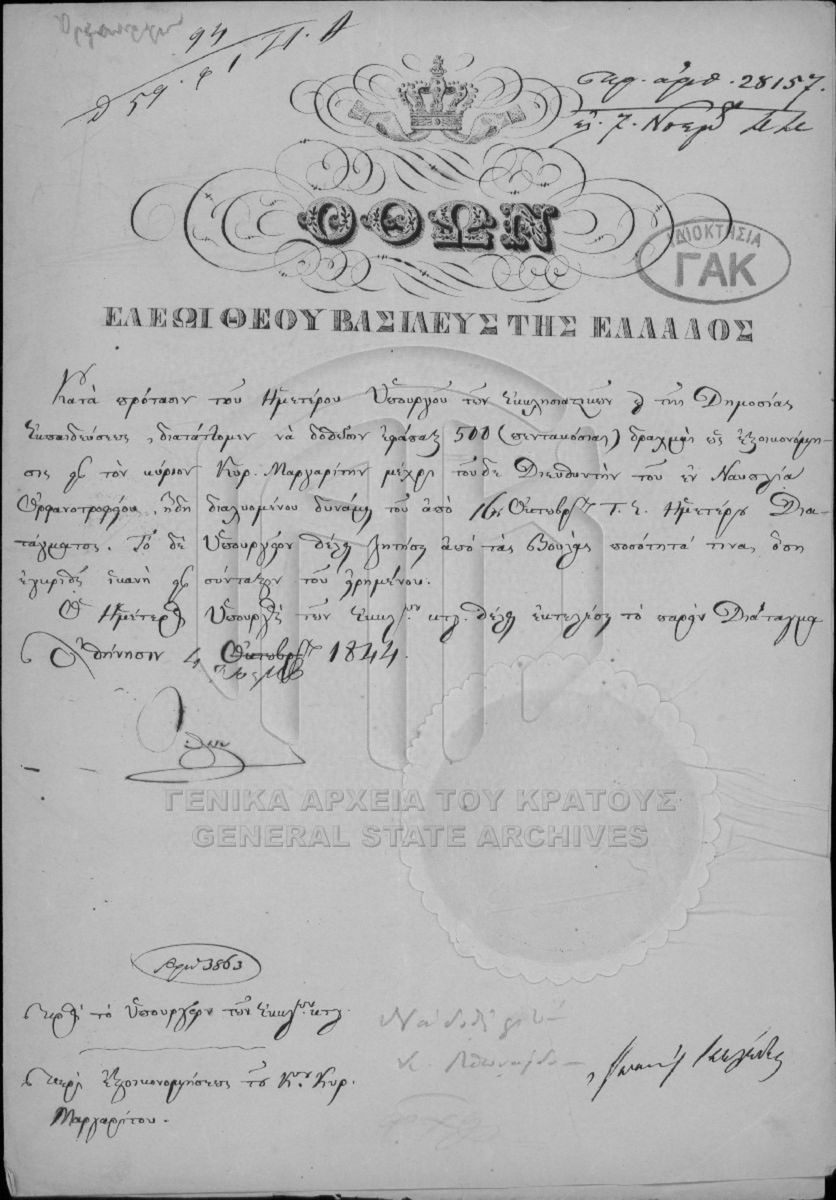 94
Δ 59.
πρ. ἀριθ. 28157.
ΟΘΩΝ
ΙΔΙΟΚΤΗΣΙΑ
ΓΑΚ
ΕΛΕΩΙ ΘΕΟΥ ΒΑΣΙΛΕΥΣ ΤΗΣ ΕΛΛΑΔΟΣ
Κατὰ πρότασιν τοῦ Ἡμετέρου Ὑπουργοῦ τῶν Ἐκκλησιαστικῶν καὶ τῆς Δημοσίας
Ἐκπαιδεύσεως, διατάττομεν νὰ δοθῶσιν ἐφάπαξ 500 (πεντακόσιαι) δραχμαὶ ὡς ἐξοικονόμη-
σις εἰς τὸν κύριον Κυρ. Μαργαρίτην μέχρι τοῦδε Διευθυντὴν τοῦ ἐν Ναυπλίᾳ
Ὀρφανοτροφείου, ἤδη διαλυομένου δυνάμει τοῦ ἀπὸ 16 Ὀκτωβρίου τ. ἔ. Ἡμετέρου Δια-
τάγματος. Τὸ δὲ Ὑπουργεῖον θέλει ζητήσει ἀπὸ τὰς Βουλὰς ποσότητά τινα, ὅση
ἐγκριθῇ ἱκανὴ εἰς σύνταξιν τοῦ εἰρημένου.
Ὁ Ἡμέτερος Ὑπουργὸς τῶν Ἐκκλ/κῶν κτλ. θέλει ἐκτελέσει τὸ παρὸν Διάταγμα
Ἀθήνησιν 4 Ὀκτωβρίου 1844.
Όθων
ΓΕΝΙΚΑ ΑΡΧΕΙΑ ΤΟΥ ΚΡΑΤΟΥΣ
GENERAL STATE ARCHIVES
Ἀριθ 3863
Πρὸς τὸ Ὑπουργεῖον τῶν Ἐκκλ/κῶν κτλ.
Περὶ ἐξοικονομήσεως τοῦ Κου Κυρ.
Μαργαρίτου.